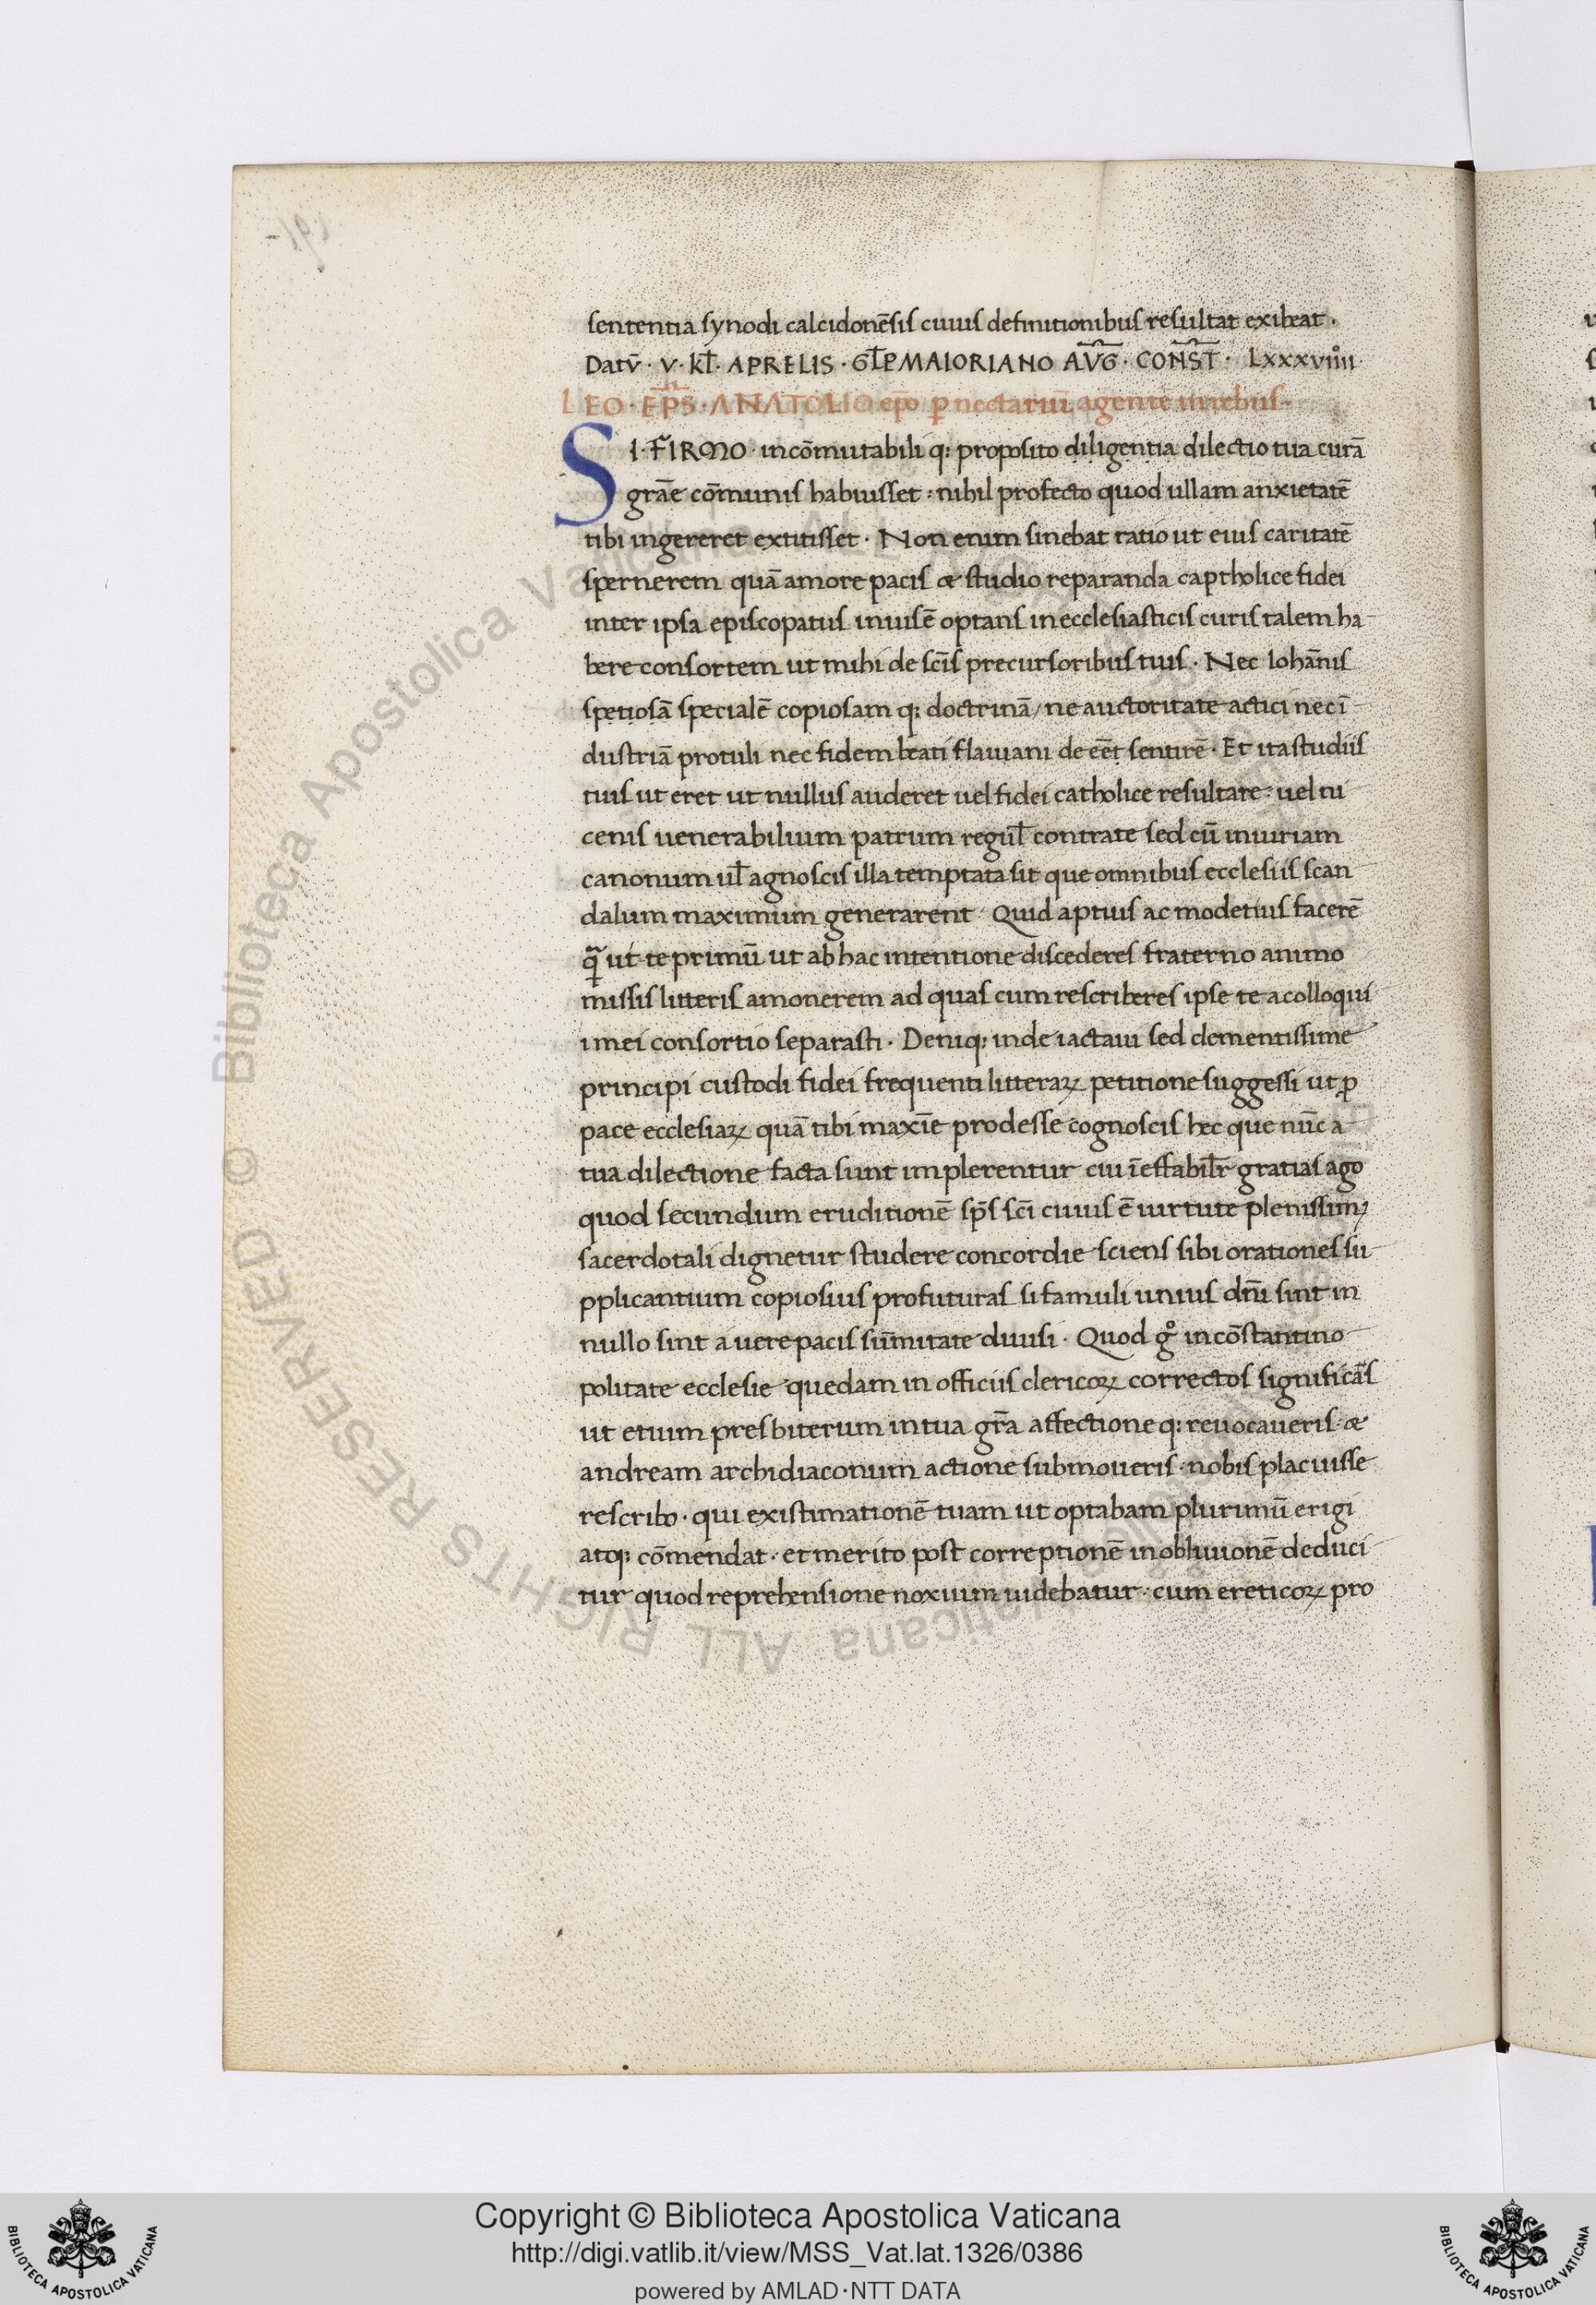 sententia synodi calcidonēsis cuius definitionibus resultat exibeat ·
Datū · V · kl̄ · APRELIS · GL̄P MAIORIANO AVḠ · CONS̄T · LXXXVIIII
LEO · EP̄S · ANATOLIO ep̄o ꝑ nectariū agentē in rebus ·
SI · FIRMO · incōmutabili q; proposito diligentia dilectio tua curā
grāe cōmunis habuisset · nihil profecto quod ullam anxietatē
tibi ingereret extitisset · Non enim sinebat ratio ut eius caritatē
spernerem quā amore pacis æ studio reparanda captholice fidei
inter ipsa episcopatus inuisē optans in ecclesiasticis curis talem ha
bere consortem ut mihi de sc̄is precursoribus tuis · Nec Iohānis
spetiosā specialē copiosam q; doctrinā / ne auctoritate actici nec ī
dustriā protuli nec fidem beati flauiani de eēt sentirē · Et ita studiis
tuis ut eret ut nullus auderet uel fidei catholice resultare · uel ni
cenis uenerabilium patrum regul̄ contrate sed cū iniuriam
canonum ul̄ agnoscis illa temptata sit que omnibus ecclesiis scan
dalum maximum generarent · Quid aptius ac modetius facerē
q̄ ut te primū ut ab hac intentione discederes fraterno animo
missis litteris amonerem ad quas cum rescriberes ipse te a colloqui
i mei consortio separasti · Deniq; inde iactaui sed clementissime
principi custodi fidei frequenti litteraꝝ petitione suggessi ut ꝓ
pace ecclesiaꝝ quā tibi maxīe prodesse cognoscis hec que nūc a
tua dilectione facta sunt implerentur cui īeffabil̄r gratias ago
quod secundum eruditionē sp̄s sc̄i cuius ē uirtute plenissimꝫ
sacerdotali dignetur studere concordie sciens sibi orationes su
pplicantium copiosius profuturas si famuli unius dn̄i sint in
nullo sint a uere pacis sūmitate diuisi · Quod gͦ in cōstantino
politate ecclesie quedam in officiis clericoꝝ correctos significās
ut etuim presbiterum in tua gr̄a affectione q; reuocaueris · æ
andream archidiaconum actione submoueris · nobis placuisse
rescribo · qui existimationē tuam ut optabam plurimū erigi
atq; cōmendat · et merito post correptionē in obliuionē deduci
tur quod reprehensione noxium uidebatur · cum ereticoꝝ pro
© Biblioteca Apostolica Vaticana ALL RIGHTS RESERVED
Copyright © Biblioteca Apostolica Vaticana
http://digi.vatlib.it/view/MSS_Vat.lat.1326/0386
powered by AMLAD·NTT DATA
BIBLIOTECA APOSTOLICA VATICANA
BIBLIOTECA APOSTOLICA VATICANA